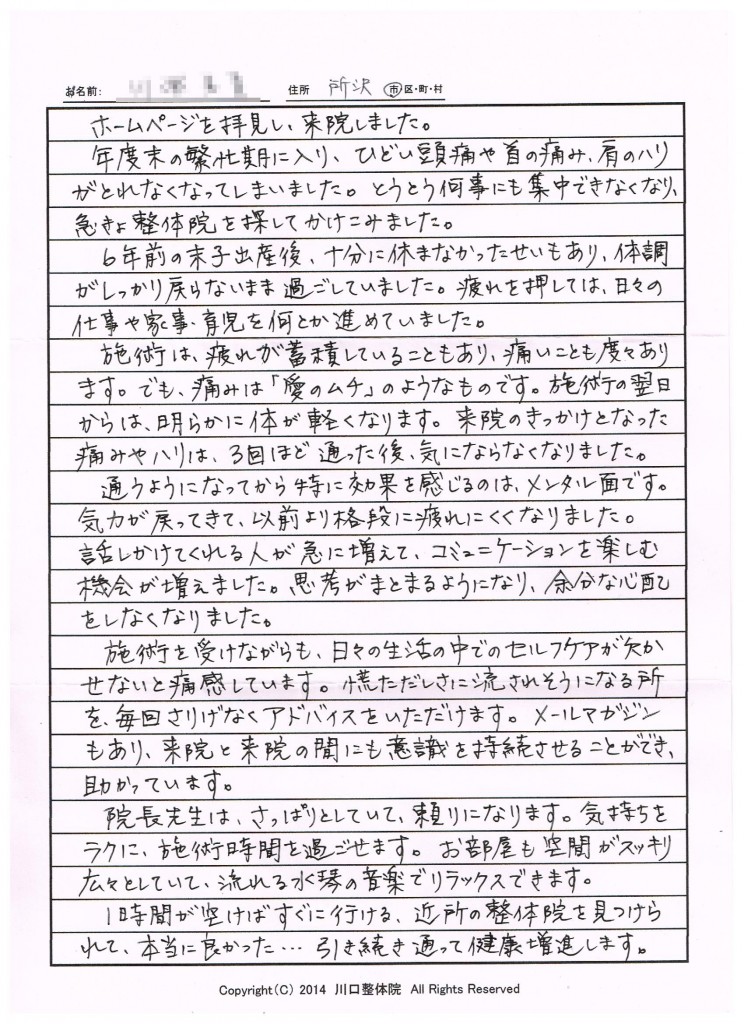 お名前: 住所 所沢 市区・町・村
ホームページを拝見し、来院しました。
年度末の繁忙期に入り、ひどい頭痛や首の痛み、肩のハリ
がとれなくなってしまいました。とうとう何事にも集中できなくなり、
急きょ整体院を探してかけこみました。
6年前の末子出産後、十分に休まなかったせいもあり、体調
がしっかり戻らないまま過ごしていました。疲れを押しては、日々の
仕事や家事・育児を何とか進めていました。
施術は、疲れが蓄積していることもあり、痛いことも度々あり
ます。でも、痛みは「愛のムチ」のようなものです。施術の翌日
からは、明らかに体が軽くなります。来院のきっかけとなった
痛みやハリは、3回ほど通った後、気にならなくなりました。
通うようになってから特に効果を感じるのは、メンタル面です。
気力が戻ってきて、以前より格段に疲れにくくなりました。
話しかけてくれる人が急に増えて、コミュニケーションを楽しむ
機会が増えました。思考がまとまるようになり、余分な心配
をしなくなりました。
施術を受けながらも、日々の生活の中でのセルフケアが欠か
せないと痛感しています。慌ただしさに流されそうになる所
を、毎回さりげなくアドバイスをいただけます。メールマガジン
もあり、来院と来院の間にも意識を持続させることができ、
助かっています。
院長先生は、さっぱりとしていて、頼りになります。気持ちを
ラクに、施術時間を過ごせます。お部屋も空間がスッキリ
広々としていて、流れる水琴の音楽でリラックスできます。
1時間が空けばすぐに行ける、近所の整体院を見つけら
れて、本当に良かった…引き続き通って健康増進します。
Copyright(C) 2014 川口整体院 All Rights Reserved